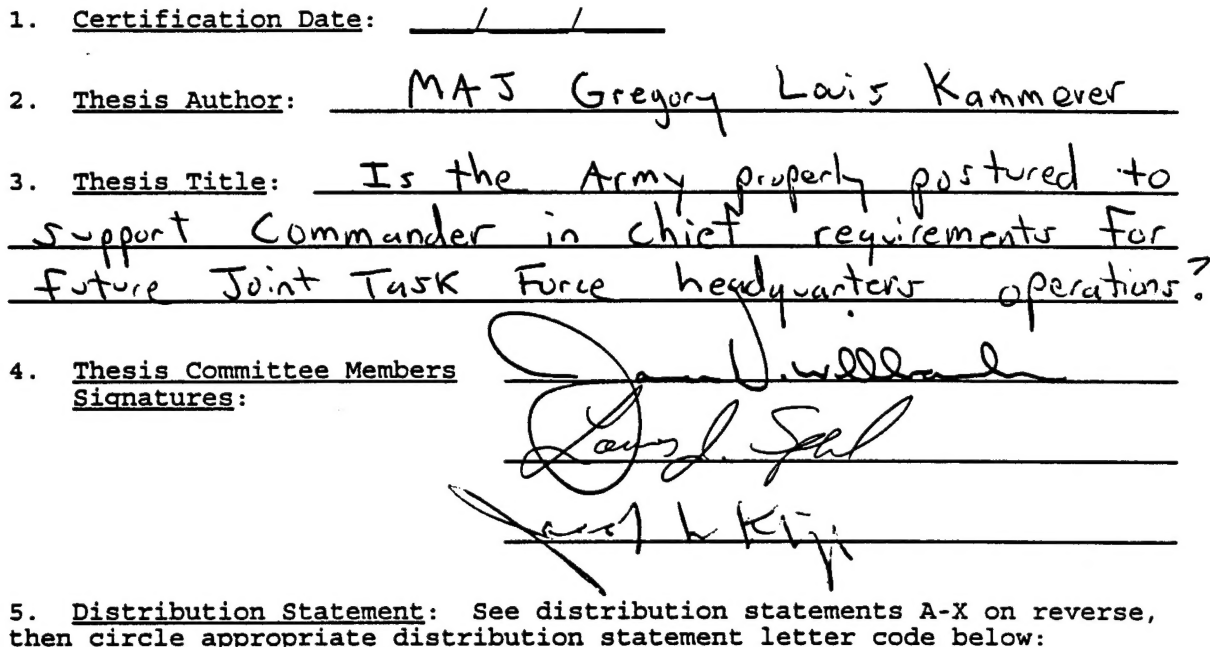 1. Certification Date: / /
2. Thesis Author: MAJ Gregory Louis Kammerer
3. Thesis Title: Is the Army properly postured to
support Commander in chief requirements for
future Joint Task Force headquarters operations?
4. Thesis Committee Members
Signatures:
5. Distribution Statement: See distribution statements A-X on reverse,
then circle appropriate distribution statement letter code below: